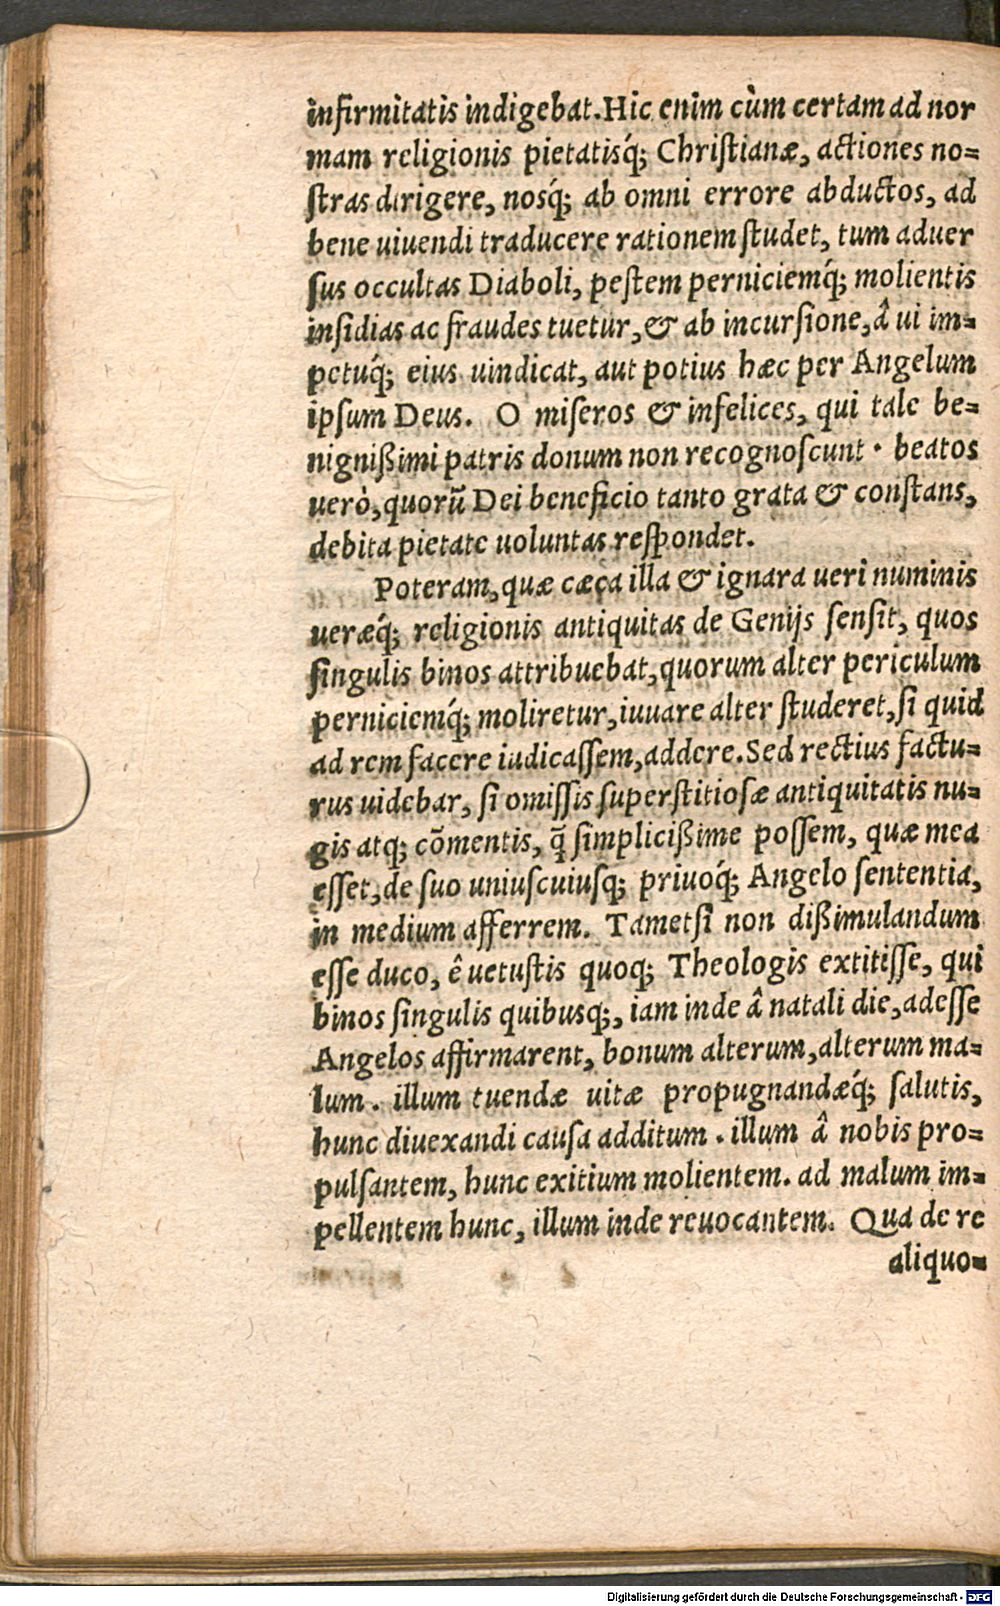 infirmitatis indigebat. Hic enim cùm certam ad nor
mam religionis pietatisq́; Christianæ, actiones no=
ſtras dirigere, nosq́; ab omni errore abductos, ad
bene uiuendi traducere rationem ſtudet, tum aduer
ſus occultas Diaboli, peſtem perniciemq́; molientis
inſidias ac fraudes tuetur, & ab incurſione, â ui im=
petuq́; eius uindicat, aut potius hæc per Angelum
ipſum Deus. O miſeros & infelices, qui tale be=
nignißimi patris donum non recognoſcunt · beatos
uerò, quorũ Dei beneficio tanto grata & conſtans,
debita pietate uoluntas reſpondet.
Poteram, quæ cæca illa & ignara ueri numinis
ueræq́; religionis antiquitas de Genijs ſenſit, quos
ſingulis binos attribuebat, quorum alter periculum
perniciemq́; moliretur, iuuare alter ſtuderet, ſi quid
ad rem facere iudicaſſem, addere. Sed rectius factu=
rus uidebar, ſi omiſſis ſuperſtitioſæ antiquitatis nu=
gis atq; cōmentis, q̃ ſimplicißime poſſem, quæ mea
eſſet, de ſuo uniuſcuiuſq; priuoq́; Angelo ſententia,
in medium afferrem. Tametſi non dißimulandum
eſſe duco, ê uetuſtis quoq; Theologis extitiſſe, qui
binos ſingulis quibusq;, iam inde â natali die, adeſſe
Angelos affirmarent, bonum alterum, alterum ma=
lum. illum tuendæ uitæ propugnandæq́; ſalutis,
hunc diuexandi cauſa additum. illum â nobis pro=
pulſantem, hunc exitium molientem. ad malum im=
pellentem hunc, illum inde reuocantem. Qua de re
aliquo=
Digitalisierung gefördert durch die Deutsche Forschungsgemeinschaft - DFG